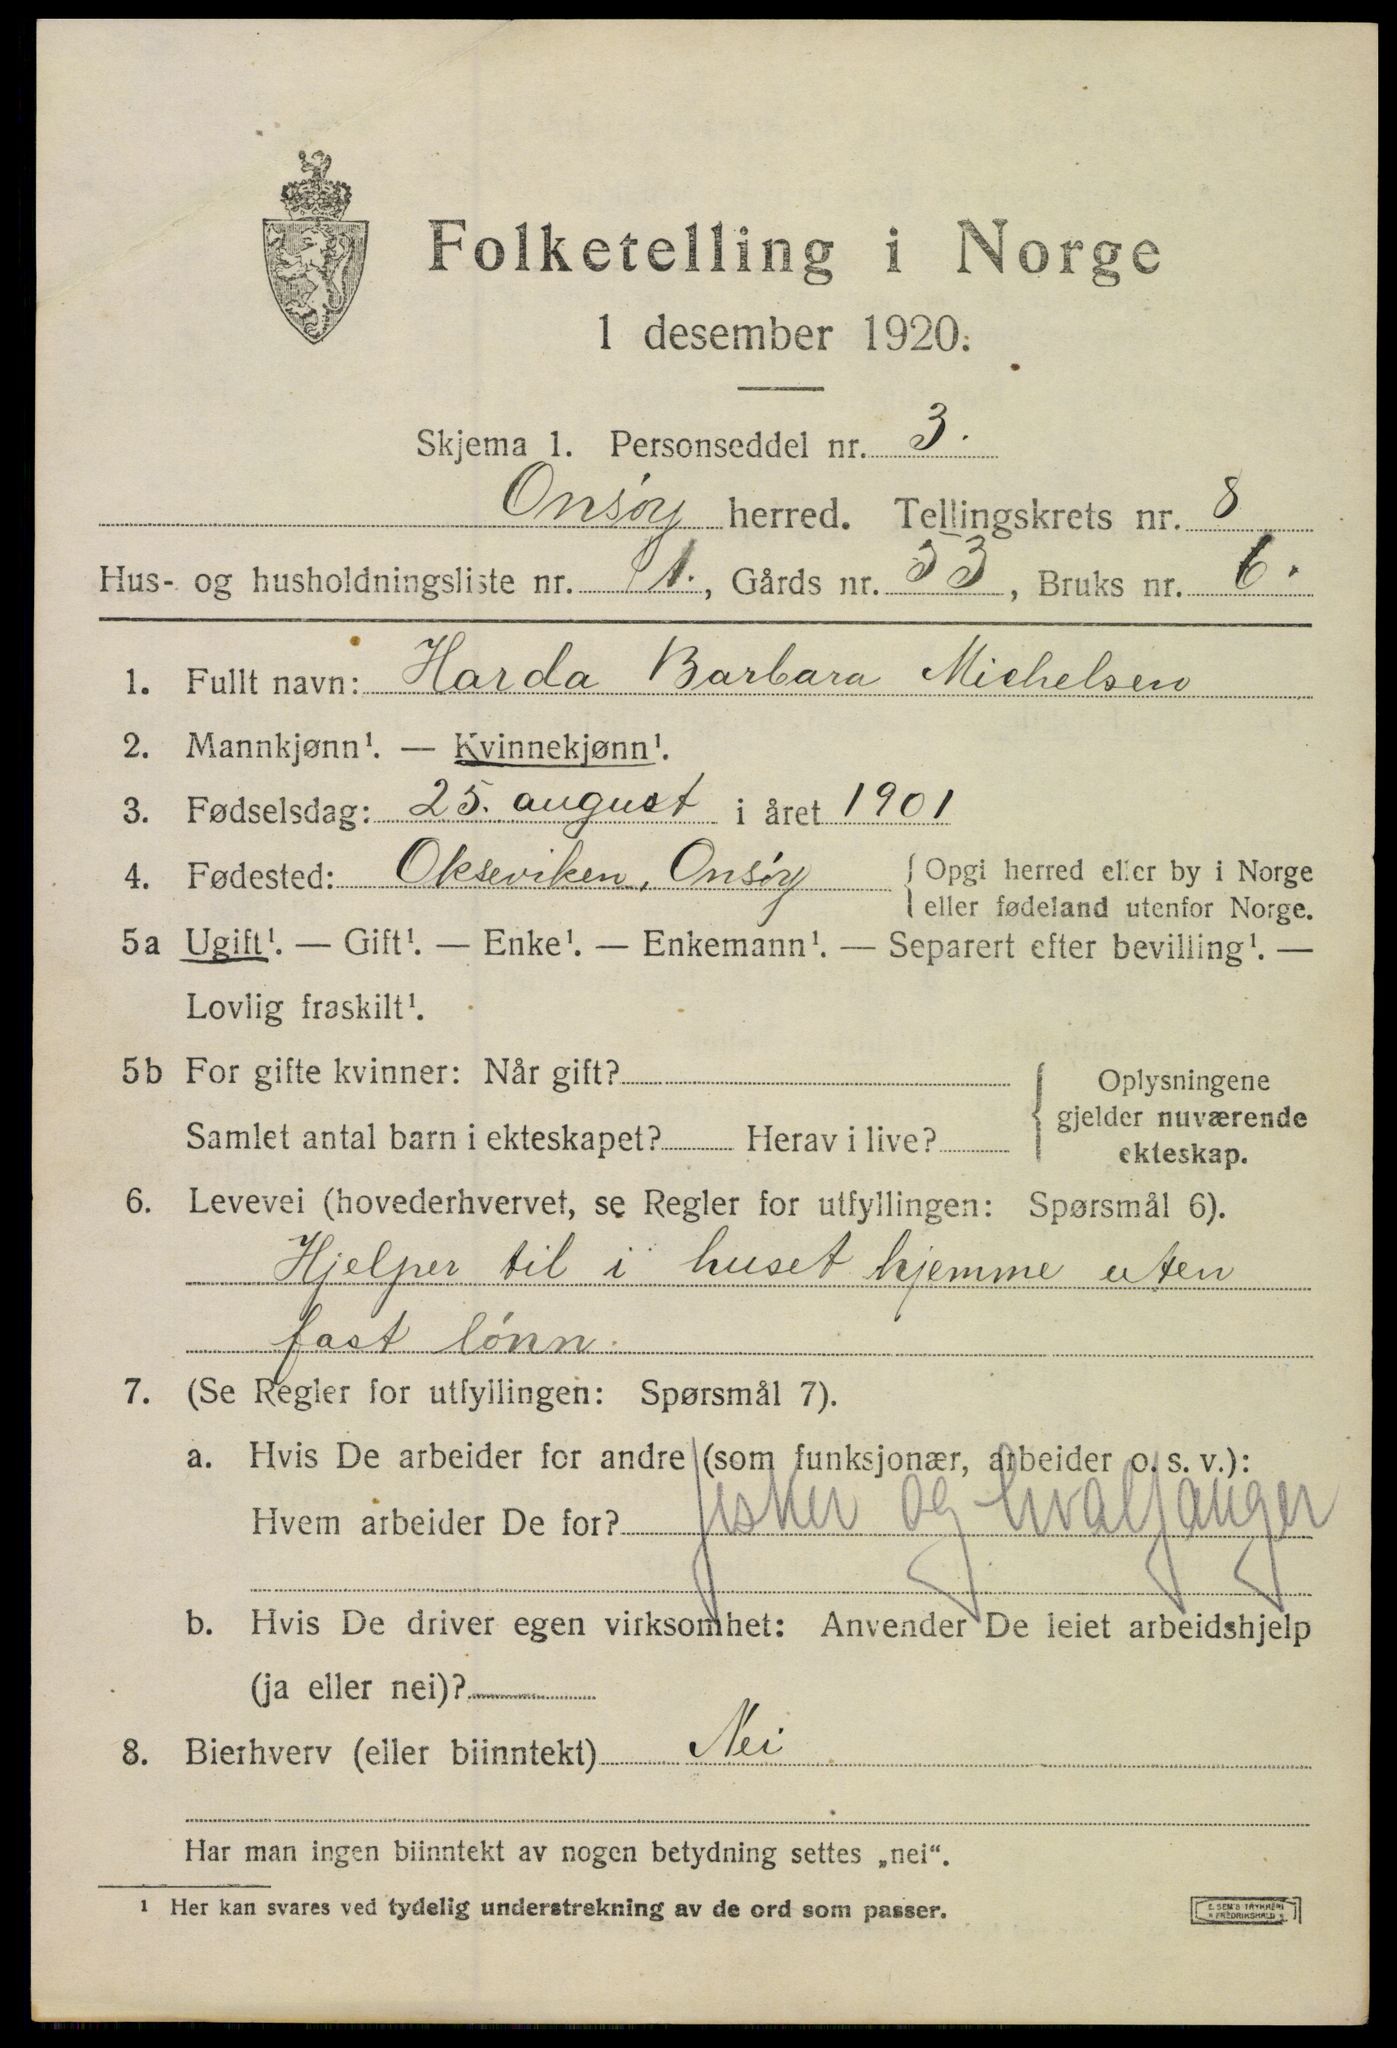 Folketelling i Norge
1 desember 1920.
Skjema 1. Personseddel nr. 3.
Onsøy herred. Tellingskrets nr. 8
Hus- og husholdningsliste nr. 1., Gårds nr. 53, Bruks nr. 6.
1. Fullt navn: Harda Barbara Michelsen
2. Mannkjønn¹. — Kvinnekjønn¹.
3. Fødselsdag: 25. august i året 1901
4. Fødested: Okseviken, Onsøy { Opgi herred eller by i Norge
eller fødeland utenfor Norge.
5a Ugift¹. — Gift¹. — Enke¹. — Enkemann¹. — Separert efter bevilling¹. —
Lovlig fraskilt¹.
5b For gifte kvinner: Når gift?
Samlet antal barn i ekteskapet? Herav i live?
{ Oplysningene
gjelder nuværende
ekteskap.
6. Levevei (hovederhvervet, se Regler for utfyllingen: Spørsmål 6).
Hjelper til i huset hjemme uten
fast lønn.
7. (Se Regler for utfyllingen: Spørsmål 7).
a. Hvis De arbeider for andre (som funksjonær, arbeider o. s. v.):
Hvem arbeider De for? fisker og hvalfanger
b. Hvis De driver egen virksomhet: Anvender De leiet arbeidshjelp
(ja eller nei)?
8. Bierhverv (eller biinntekt) Nei
Har man ingen biinntekt av nogen betydning settes „nei“.
¹ Her kan svares ved tydelig understrekning av de ord som passer.
E. SEM'S TRYKKERI
FREDRIKSHALD